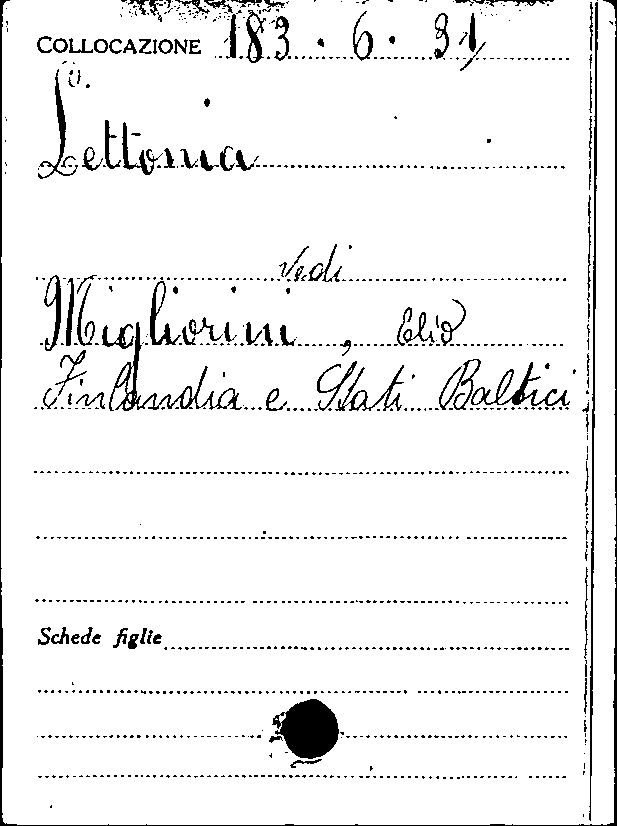 COLLOCAZIONE 183 . 6 . 31
Lettonia
Vedi
Migliorini, Elio
Finlandia e Stati Baltici
Schede figlie